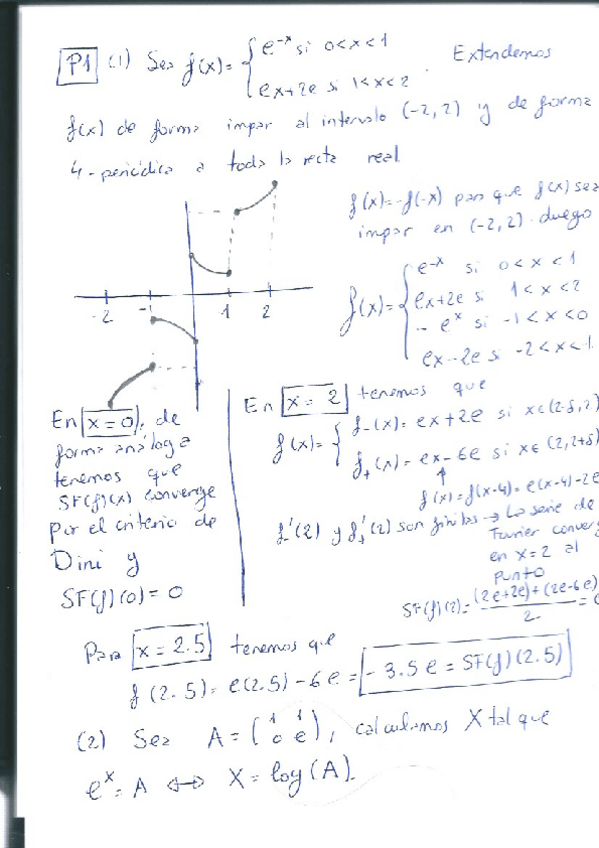 P1 (1) Sea f(x)= { e^-x si 0<x<1
ex+2e si 1<x<2 . Extendemos
f(x) de forma impar al intervalo (-2,2) y de forma
4-periódica a toda la recta real
f(x)=-f(-x) para que f(x) sea
impar en (-2,2). Luego
f(x)= { e^-x si 0<x<1
ex+2e si 1<x<2
-e^x si -1<x<0
ex-2e si -2<x<-1
-2 -1 1 2
En x=0, de
forma análoga
tenemos que
SF(f)(x) converge
por el criterio de
Dini y
SF(f)(0)=0
En x=2 tenemos que
f(x)= { f-(x)=ex+2e si x∈(2-δ,2)
f+(x)=ex-6e si x∈(2,2+δ)
f(x)=f(x-4)=e(x-4)-2e
f-'(2) y f+'(2) son finitas → La serie de
Fourier converg
en x=2 al
punto
SF(f)(2)=(2e+2e)+(2e-6e)/2=0
Para x=2.5 tenemos que
f(2.5)=e(2.5)-6e=-3.5e=SF(f)(2.5)
(2) Sea A=(1 1
0 e), calculamos X tal que
e^X=A ↔ X=log(A).